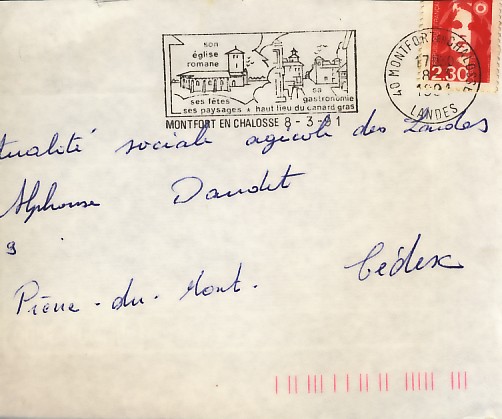 son
église
romane
sa
gastronomie
ses fêtes
ses paysages ★ haut lieu du canard gras
MONTFORT EN CHALOSSE 8 - 3 - 91
2,30
40 MONTFORT-EN-CHALOSSE
8
1991
LANDES
tualité sociale agicole des Landes
Alphonse Daudet
9
Pierre - du - Mont. Cédex